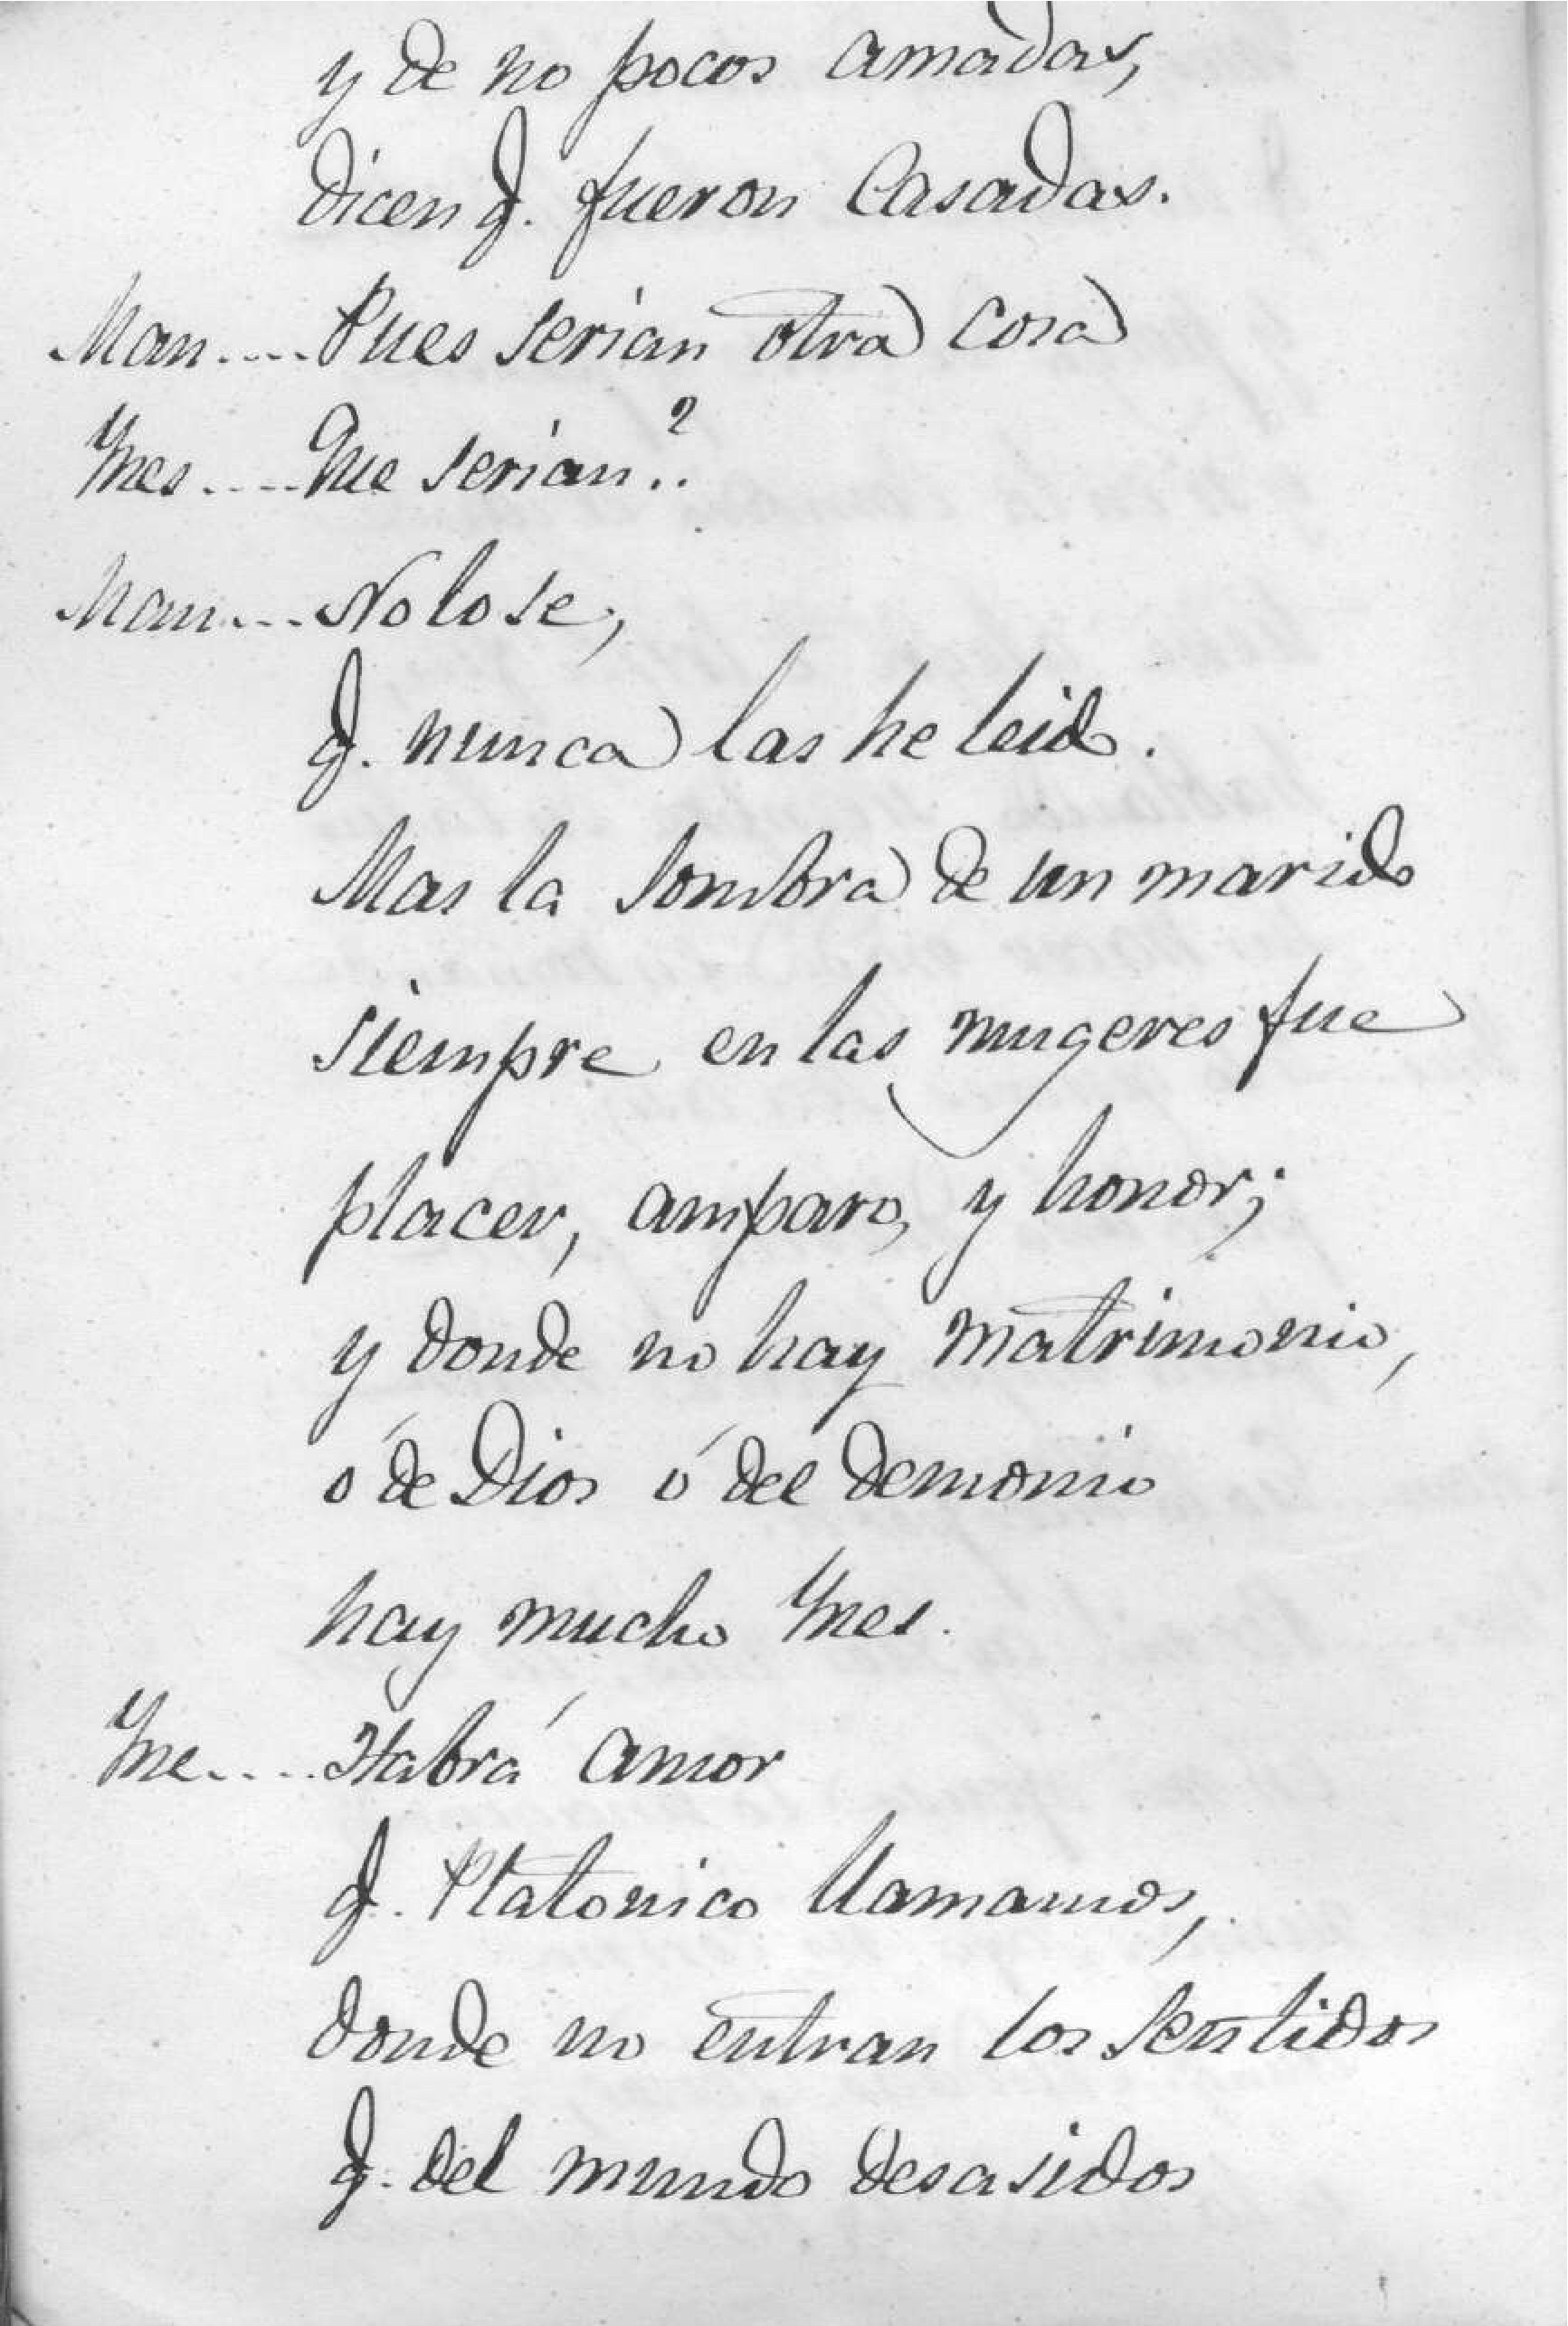 y de no pocos amadas,
dicen q. fueron Casadas.
Man.... Pues serían otra cosa
Ynes.... Que serían..?
Man... No lo se,
q. nunca las he leido.
Mas la sombra de un marido
siempre en las mugeres fue
placer, amparo, y honor;
y donde no hay matrimonio,
ó de Dios ó del demonio
hay mucho Ynes.
Yne.... Habrá amor
q. Platonico llamamos,
donde no entran los sentidos
q. del mundo desasidos